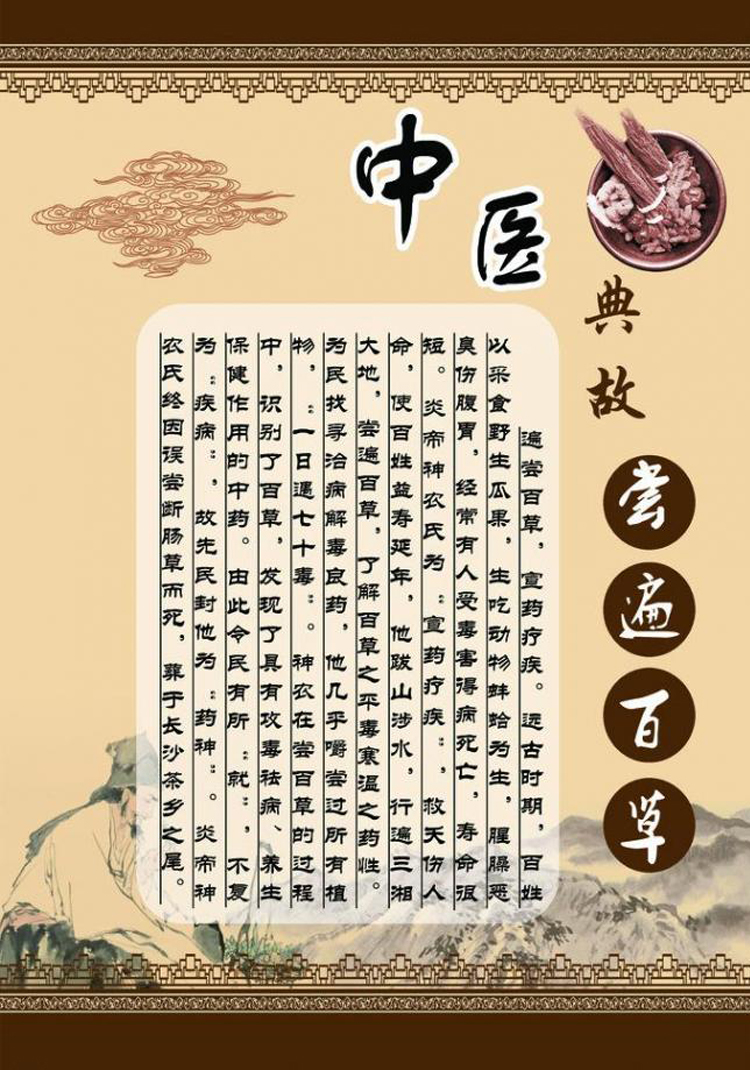 中医
典故
尝遍百草
遍尝百草，宣药疗疾。远古时期，百姓
以采食野生瓜果，生吃动物蚌蛤为生，腥臊恶
臭伤腹胃，经常有人受毒害得病死亡，寿命很
短。炎帝神农氏为“宣药疗疾”，救夭伤人
命，使百姓益寿延年，他跋山涉水，行遍三湘
大地，尝遍百草，了解百草之平毒寒温之药性。
为民找寻治病解毒良药，他几乎嚼尝过所有植
物，“一日遇七十毒”。神农在尝百草的过程
中，识别了百草，发现了具有攻毒祛病、养生
保健作用的中药。由此令民有所“就”，不复
为“疾病”，故先民封他为“药神”。炎帝神
农氏终因误尝断肠草而死，葬于长沙茶乡之尾。